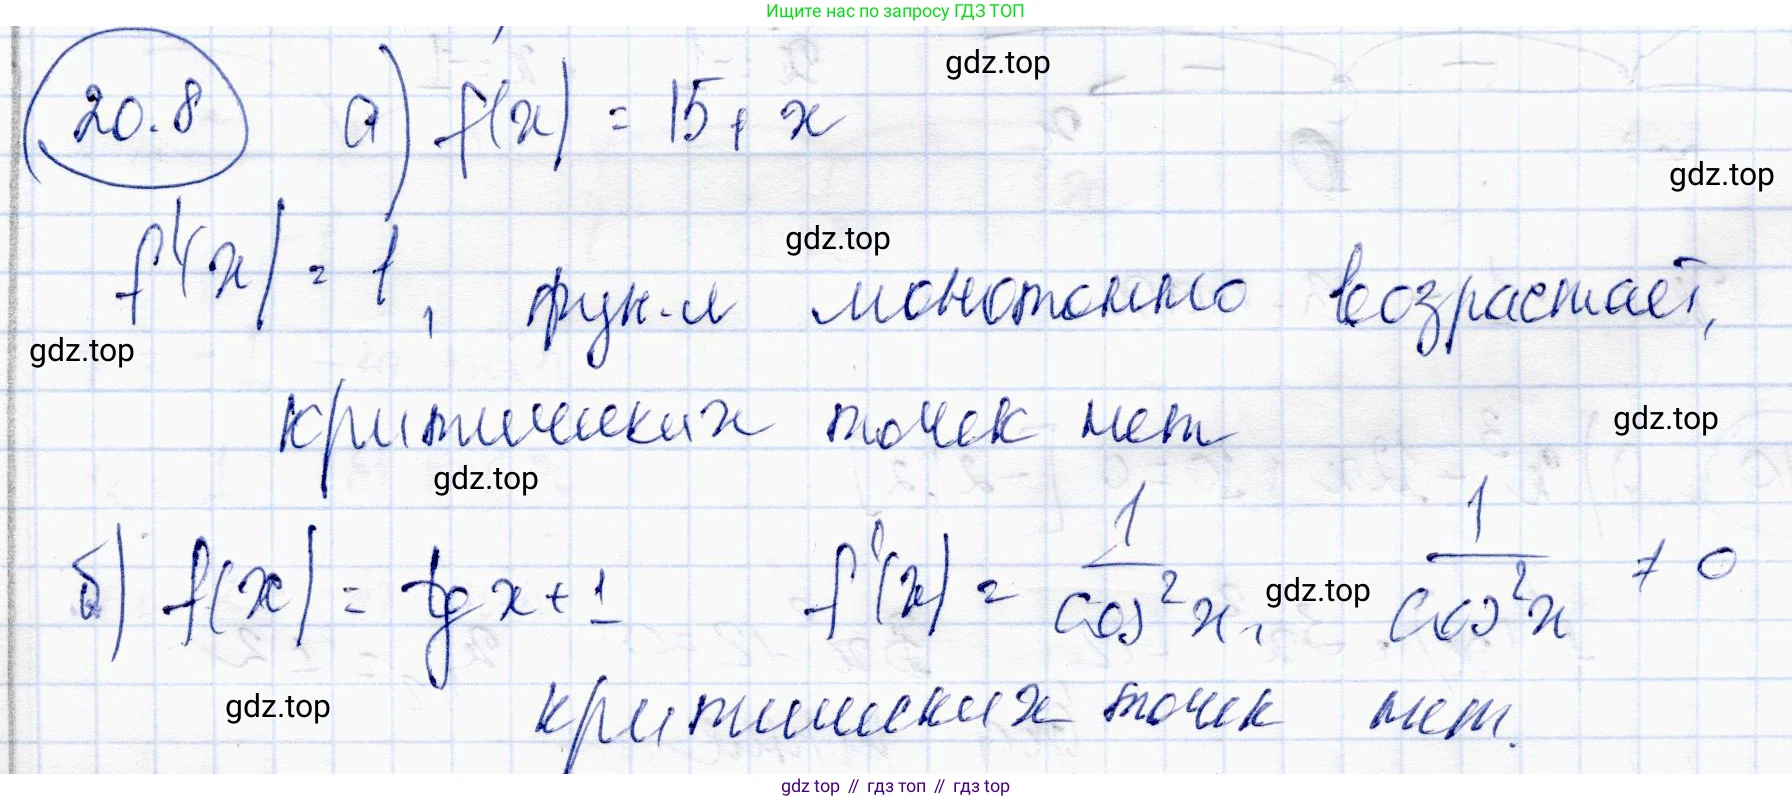 Ищите нас по запросу ГДЗ ТОП
20.8 а) f(x) = 15 + x
gdz.top
gdz.top
f'(x) = 1, фун-я монотонно возрастает,
gdz.top
gdz.top
критических точек нет
gdz.top
gdz.top
б) f(x) = tg x + 1 f'(x) = 1/cos²x, 1/cos²x ≠ 0
gdz.top
критических точек нет.
gdz.top
gdz top // гдз топ // гдз top